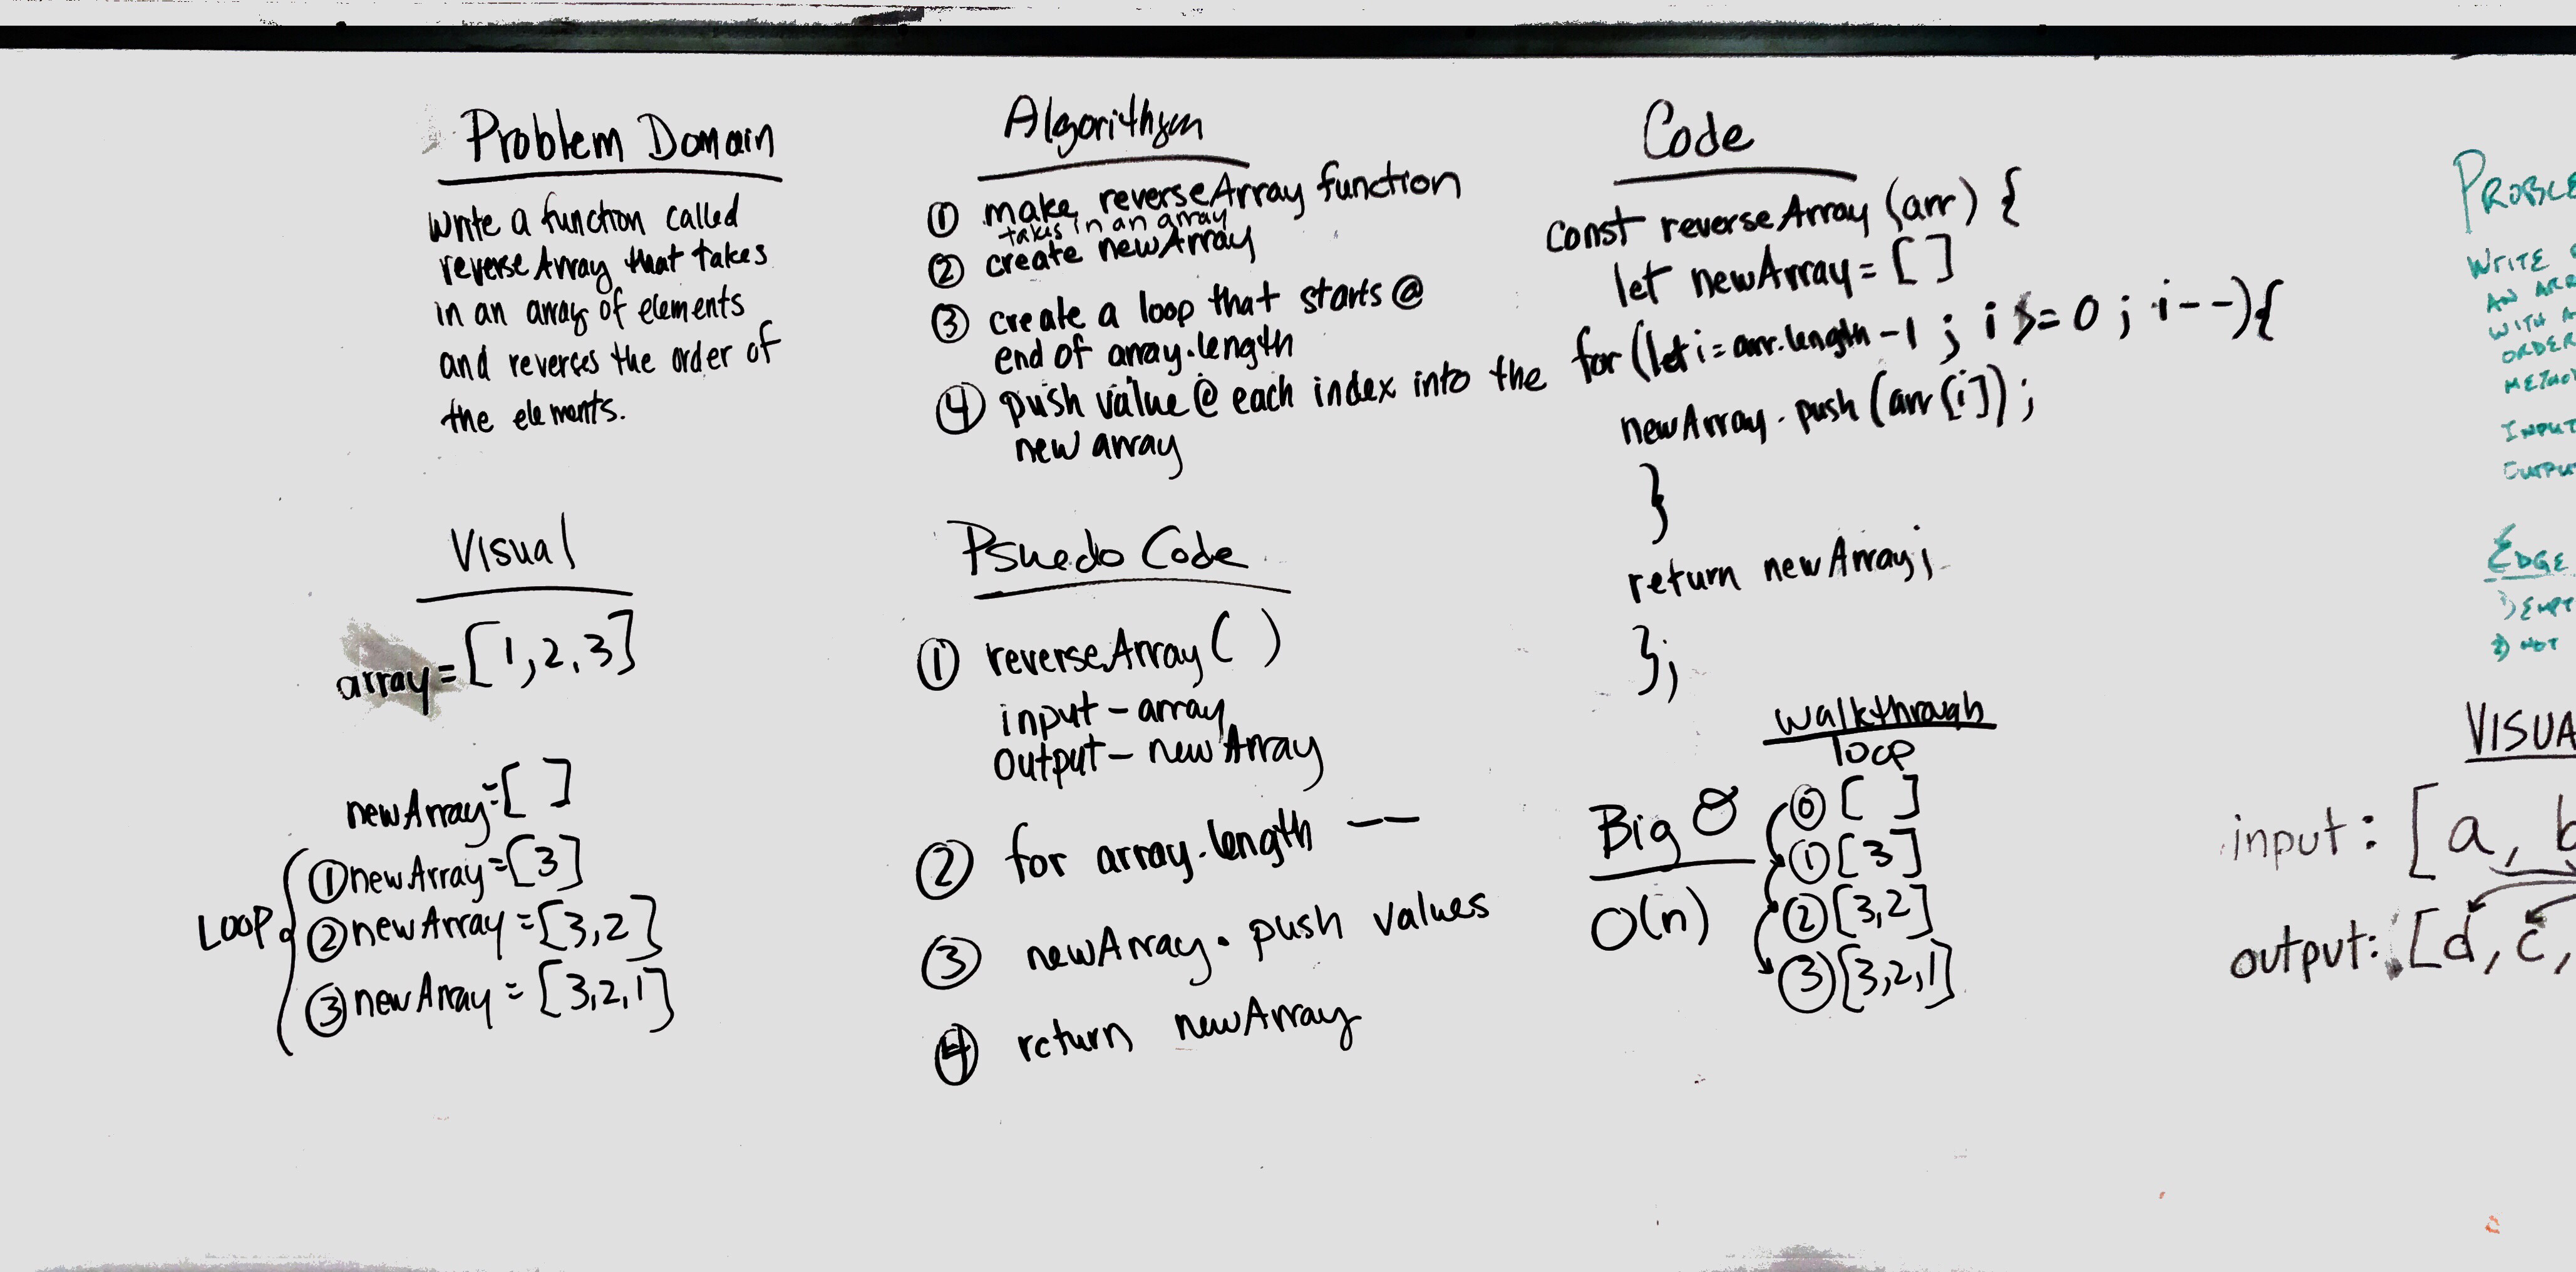 Problem Domain
Write a function called
reverse Array that takes
in an array of elements
and reverses the order of
the elements.
Visual
array = [1,2,3]
newArray = [ ]
LOOP
① newArray = [3]
② newArray = [3,2]
③ newArray = [3,2,1]
Algorithym
① make reverseArray function
takes in an array
② create newArray
③ create a loop that starts @
end of array.length
④ push value @ each index into the
new array
Psuedo Code
① reverseArray ( )
input - array
output - newArray
② for array.length --
③ newArray.push values
④ return newArray
Code
const reverseArray (arr) {
let newArray = [ ]
for (let i = arr.length -1 ; i >= 0 ; i--){
newArray.push (arr [i]) ;
}
return newArray;
};
Big O
O(n)
walkthrough
loop
⓪ [ ]
① [3]
② [3,2]
③ [3,2,1]
PROBLE
WRITE
AN ARR
WITH A
ORDER
METHO
INPUT
OUTPU
EDGE
1) EMPT
2) NOT
VISUA
input: [a, b
output: [d, c,